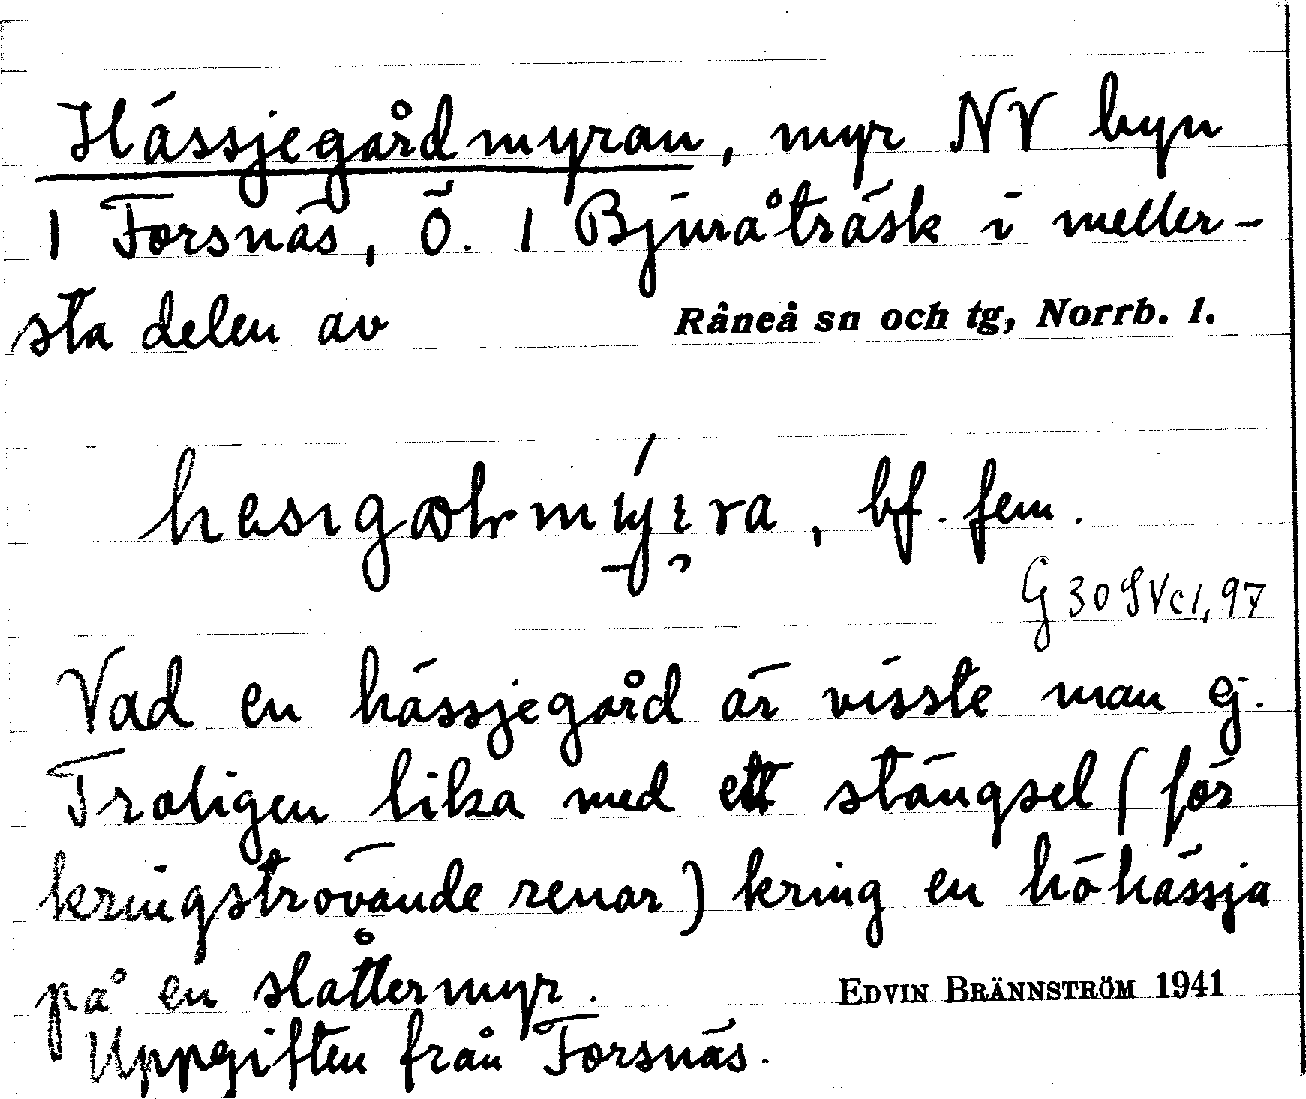 Hässjegårdmyran, myr NV byn
l Forsnäs, Ö. l Bjuråträsk i meller-
sta delen av Råneå sn och tg, Norrb. l.
, bf. fem.
G 30 SVc1, 97
Vad en hässjegård är visste man ej.
Troligen lika med ett stängsel (för
kringströvande renar) kring en höhässja
på en slåttermyr. EDVIN BRÄNNSTRÖM 1941
Uppgiften från Forsnäs.